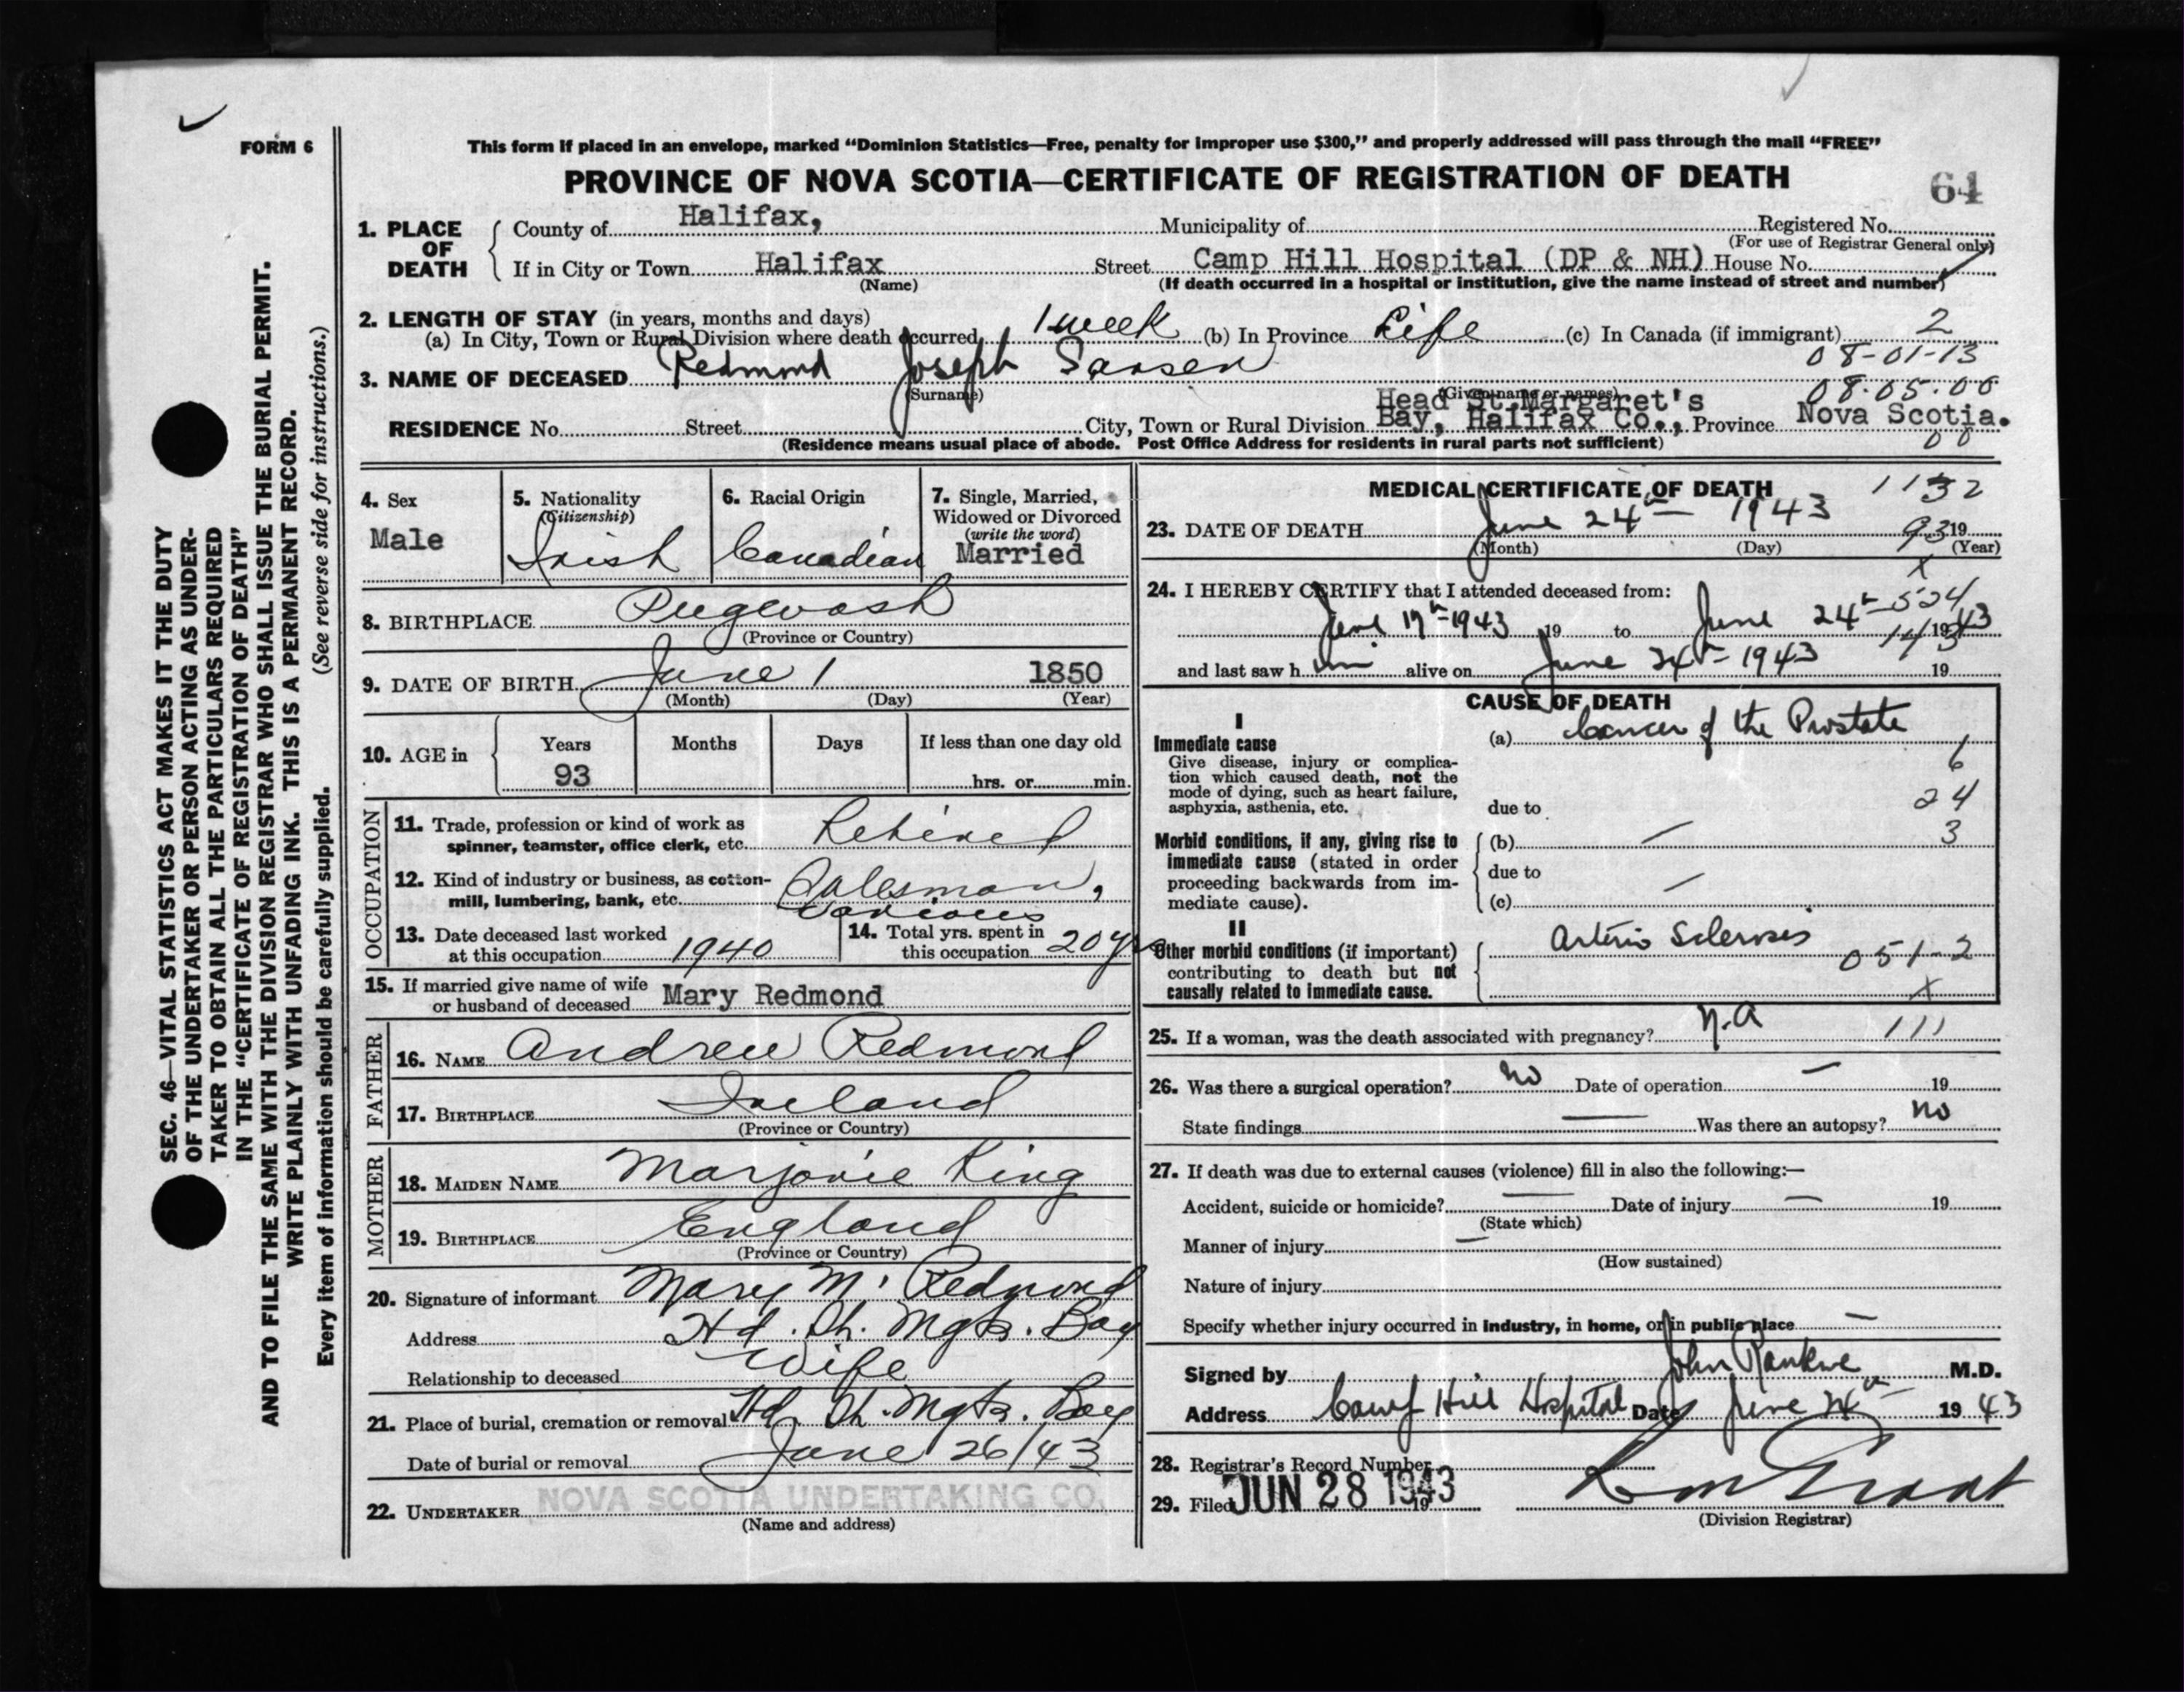 FORM 6
This form if placed in an envelope, marked "Dominion Statistics—Free, penalty for improper use $300," and properly addressed will pass through the mail "FREE"
PROVINCE OF NOVA SCOTIA—CERTIFICATE OF REGISTRATION OF DEATH
64
1. PLACE OF DEATH
County of Halifax, Municipality of Registered No.
(For use of Registrar General only)
If in City or Town Halifax Street Camp Hill Hospital (DP & NH) House No.
(Name) (If death occurred in a hospital or institution, give the name instead of street and number)
2. LENGTH OF STAY (in years, months and days)
(a) In City, Town or Rural Division where death occurred 1 week (b) In Province Life (c) In Canada (if immigrant) 2
08-01-13
3. NAME OF DECEASED Redmond Joseph
(Surname) (Given name or names) 08.05.00
RESIDENCE No. Street City, Town or Rural Division Head St.Margaret's Bay, Halifax Co., Province Nova Scotia.
(Residence means usual place of abode. Post Office Address for residents in rural parts not sufficient) 00
4. Sex Male
5. Nationality (Citizenship) Irish
6. Racial Origin Canadian
7. Single, Married, Widowed or Divorced (write the word) Married
8. BIRTHPLACE Pugwash
(Province or Country)
9. DATE OF BIRTH June 1 1850
(Month) (Day) (Year)
10. AGE in Years Months Days If less than one day old
93 hrs. or min.
OCCUPATION
11. Trade, profession or kind of work as spinner, teamster, office clerk, etc. Retired
12. Kind of industry or business, as cotton-mill, lumbering, bank, etc. Salesman, various
13. Date deceased last worked at this occupation 1940
14. Total yrs. spent in this occupation 20 yrs
15. If married give name of wife or husband of deceased Mary Redmond
FATHER
16. NAME Andrew Redmond
17. BIRTHPLACE Ireland
(Province or Country)
MOTHER
18. MAIDEN NAME Marjorie King
19. BIRTHPLACE England
(Province or Country)
20. Signature of informant Mary M. Redmond
Address Hd. St. Mgts. Bay
Relationship to deceased Wife
21. Place of burial, cremation or removal Hd. St. Mgts. Bay
Date of burial or removal June 26/43
22. UNDERTAKER NOVA SCOTIA UNDERTAKING CO.
(Name and address)
MEDICAL CERTIFICATE OF DEATH 1132
23. DATE OF DEATH June 24th 1943 93 19
(Month) (Day) (Year)
x
24. I HEREBY CERTIFY that I attended deceased from: 524
June 17th 1943 19 to June 24th 1943
and last saw him alive on June 24th 1943 19
CAUSE OF DEATH
I
Immediate cause
Give disease, injury or complication which caused death, not the mode of dying, such as heart failure, asphyxia, asthenia, etc.
(a) Cancer of the Prostate
6
due to 24
Morbid conditions, if any, giving rise to immediate cause (stated in order proceeding backwards from immediate cause).
(b) — 3
due to
(c) —
II
Other morbid conditions (if important) contributing to death but not causally related to immediate cause.
Arterio Sclerosis
051-2
x
25. If a woman, was the death associated with pregnancy? N.A 111
26. Was there a surgical operation? no Date of operation — 19
State findings — Was there an autopsy? no
27. If death was due to external causes (violence) fill in also the following:—
Accident, suicide or homicide? — Date of injury — 19
(State which)
Manner of injury —
(How sustained)
Nature of injury
Specify whether injury occurred in industry, in home, or in public place —
Signed by John Rankine M.D.
Address Camp Hill Hospital Date June 24th 1943
28. Registrar's Record Number
29. Filed JUN 28 1943 19
(Division Registrar)
SEC. 46—VITAL STATISTICS ACT MAKES IT THE DUTY
OF THE UNDERTAKER OR PERSON ACTING AS UNDER-
TAKER TO OBTAIN ALL THE PARTICULARS REQUIRED
IN THE "CERTIFICATE OF REGISTRATION OF DEATH"
AND TO FILE THE SAME WITH THE DIVISION REGISTRAR WHO SHALL ISSUE THE BURIAL PERMIT.
WRITE PLAINLY WITH UNFADING INK. THIS IS A PERMANENT RECORD.
Every item of information should be carefully supplied. (See reverse side for instructions.)